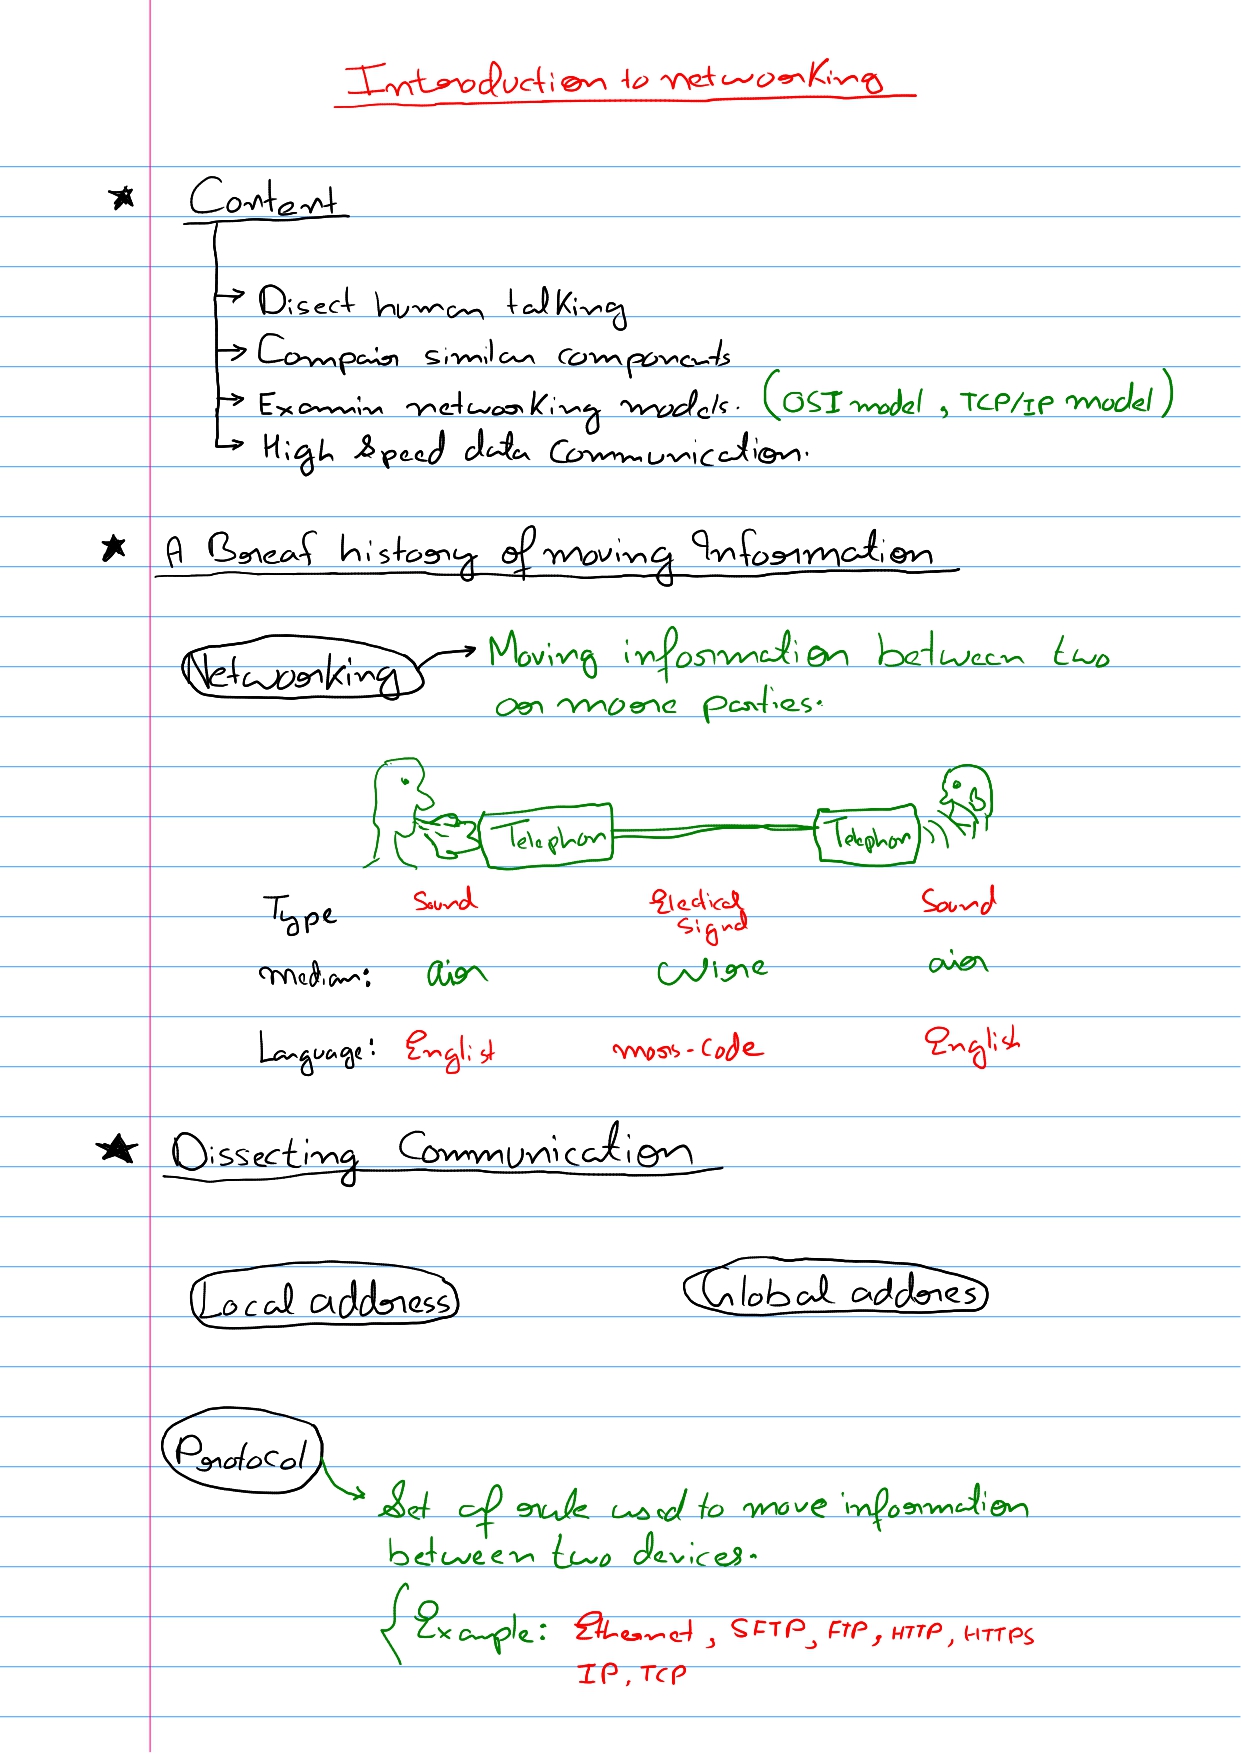 Introduction to networking
Content
Disect human talking
Compair similar components
Examin networking models. (OSI model, TCP/IP model)
High Speed data communication.
A Breaf history of moving Information
Networking → Moving information between two
or more parties.
Telephon Telephon
Type Sound Eletical Signal Sound
Median: air Wire air
Language: English mors-code English
Dissecting Communication
Local address Global addres
Protocol
Set of rule used to move information
between two devices.
Example: Ethernet, SFTP, FTP, HTTP, HTTPS
IP, TCP